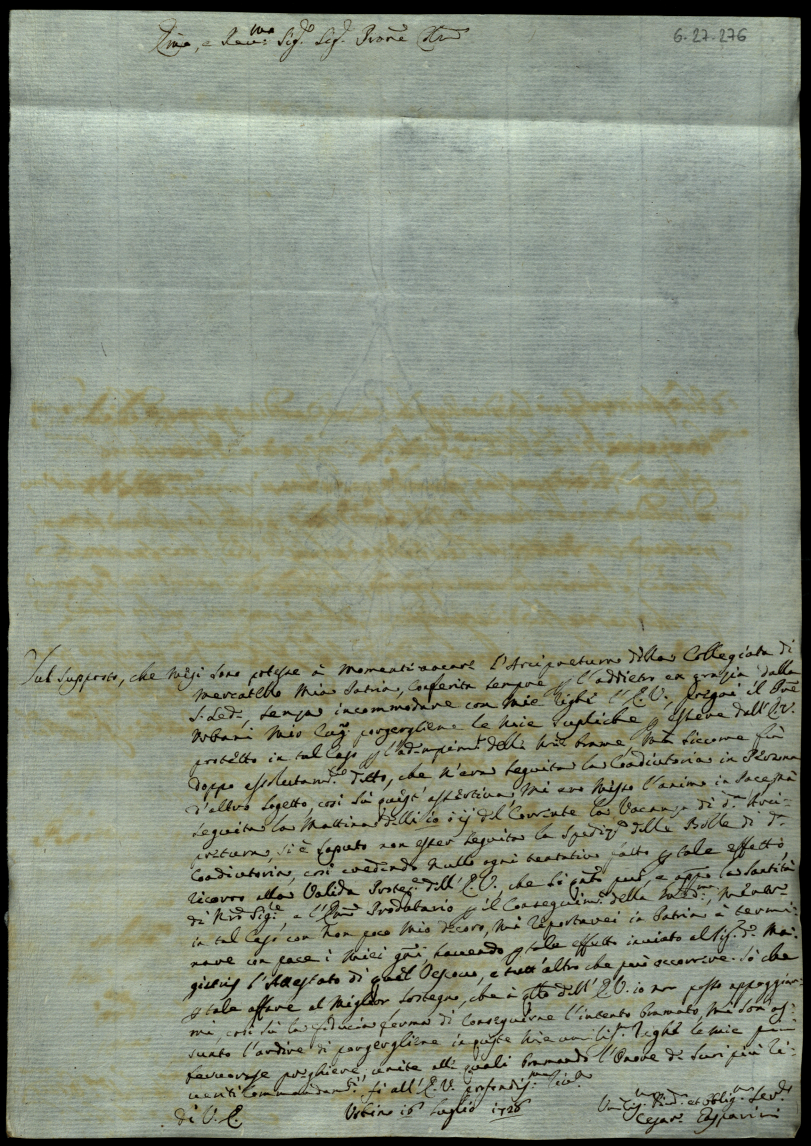 e Rev.ma Sig.r Sig.r Prone
6-27-276
Sul supposto, che mesi sono potesse à momenti vacare l'Arcipretura della Collegiata di
Mercatello mia Patria, conferita sempre p l'addietro ex grazia dalla
S. Sede, senza incommodare con mie righe l'E.V., pregai il
Urbani mio porgergliene le mie suppliche p essere dall'E.V.
protetto in tal caso p l'adempim.to delle mie brame. Mà siccome fù
doppo assolutam.te detto, che n'era seguita la Coadiutoria in Persona
d'altro sogetto, così sù quest'assertiva mi ero messo l'animo in pace; mà
seguita la mattina delli del corrente la vacanza di d.a Arci-
pretura, si è saputo non esser seguita la spediz.e delle Bolle di d.a
Coadiutoria, così vedendo nullo ogni tentativo fatto p tale effetto,
ricorro alla valida Protez.e dell'E.V., che sò può e appo la Santità
di N.ro Sig.re, e l'Em.o Prodatario p il conseguim.to della med.ma, mentre
in tal caso con non poco mio decoro, mi riportarei in Patria à termi-
nare con pace i miei havendo p tale effetto inviato al Sig.r D.
l'attestato di quel Vescovo, e tutt'altro che può occorrere. Sò che
p tale affare al miglior sostegno, che à dell'E.V. io non posso appoggiar-
mi, così sù la fiducia ferma di conseguirne l'intento bramato, mi son as-
sunto l'ardire di porgergliene in queste mie righe le mie più
fervorose preghiere, unite alle quali bramando l'onore de suoi più ri-
veriti commandam.ti, fò all'E.V.
di V. E. Urbino 16 Luglio 1726
et oblig.mo Ser.re
Cesare Gasparini